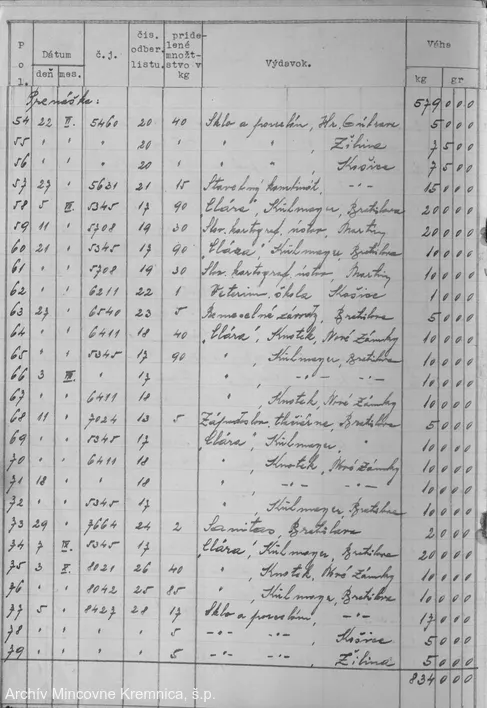 Pol. Dátum deň mes. č.j. čís. odber. listu. pridelené množtstvo v kg Výdavok. Váha kg gr
Prenáška: 579 000
54 22 II. 5460 20 40 Sklo a porcelán, 5000
55 " " " 20 " " " " Žilina 7500
56 " " " 20 1 " " Košice 7500
57 27 " 5621 21 15 Stavebný kombinát, -"- 15000
58 5 III. 5345 17 90 "Clára", Kühlmayer, Bratislava 20000
59 11 " 5708 19 30 Slov. kartograf. ústav, Martin 20000
60 21 " 5345 17 90 "Clára" Kühlmayer, Bratislava 10000
61 " " 5708 19 30 Slov. kartograf. ústav, Martin 10000
62 " " 6211 22 1 Veterin. škola Košice 1000
63 27 " 6540 23 5 závody, Bratislava 5000
64 " " 6411 18 40 "Clára", Knotek, Nové Zámky 10000
65 " " 5345 17 90 " , Kühlmayer, Bratislava 10000
66 3 " 17 " , -"- -"- 10000
67 " " 6411 18 " Knotek, Nové Zámky 10000
68 11 " 7024 13 5 Západoslov. tlačiarne, Bratislava 5000
69 " " 5345 17 "Clára", Kühlmayer, " 10000
70 " " 6411 18 " Knotek, Nové Zámky 10000
71 18 " " 18 " -"- -"- 10000
72 " " 5345 17 " , Kühlmayer, Bratislava 10000
73 29 " 7664 24 2 Sanitas, Bratislava 2000
74 7 5345 17 "Clára", Kühlmayer, Bratislava 20000
75 3 8021 26 40 " , Knotek, Nové Zámky 10000
76 " " 8042 25 85 " Kühlmayer, Bratislava 10000
77 5 " 8427 28 17 Sklo a porcelán, " 17000
78 " " " " 5 -"- -"- , Košice 5000
79 " " " 5 -"- -"- , Žilina 5000
834000
Archív Mincovne Kremnica, š.p.